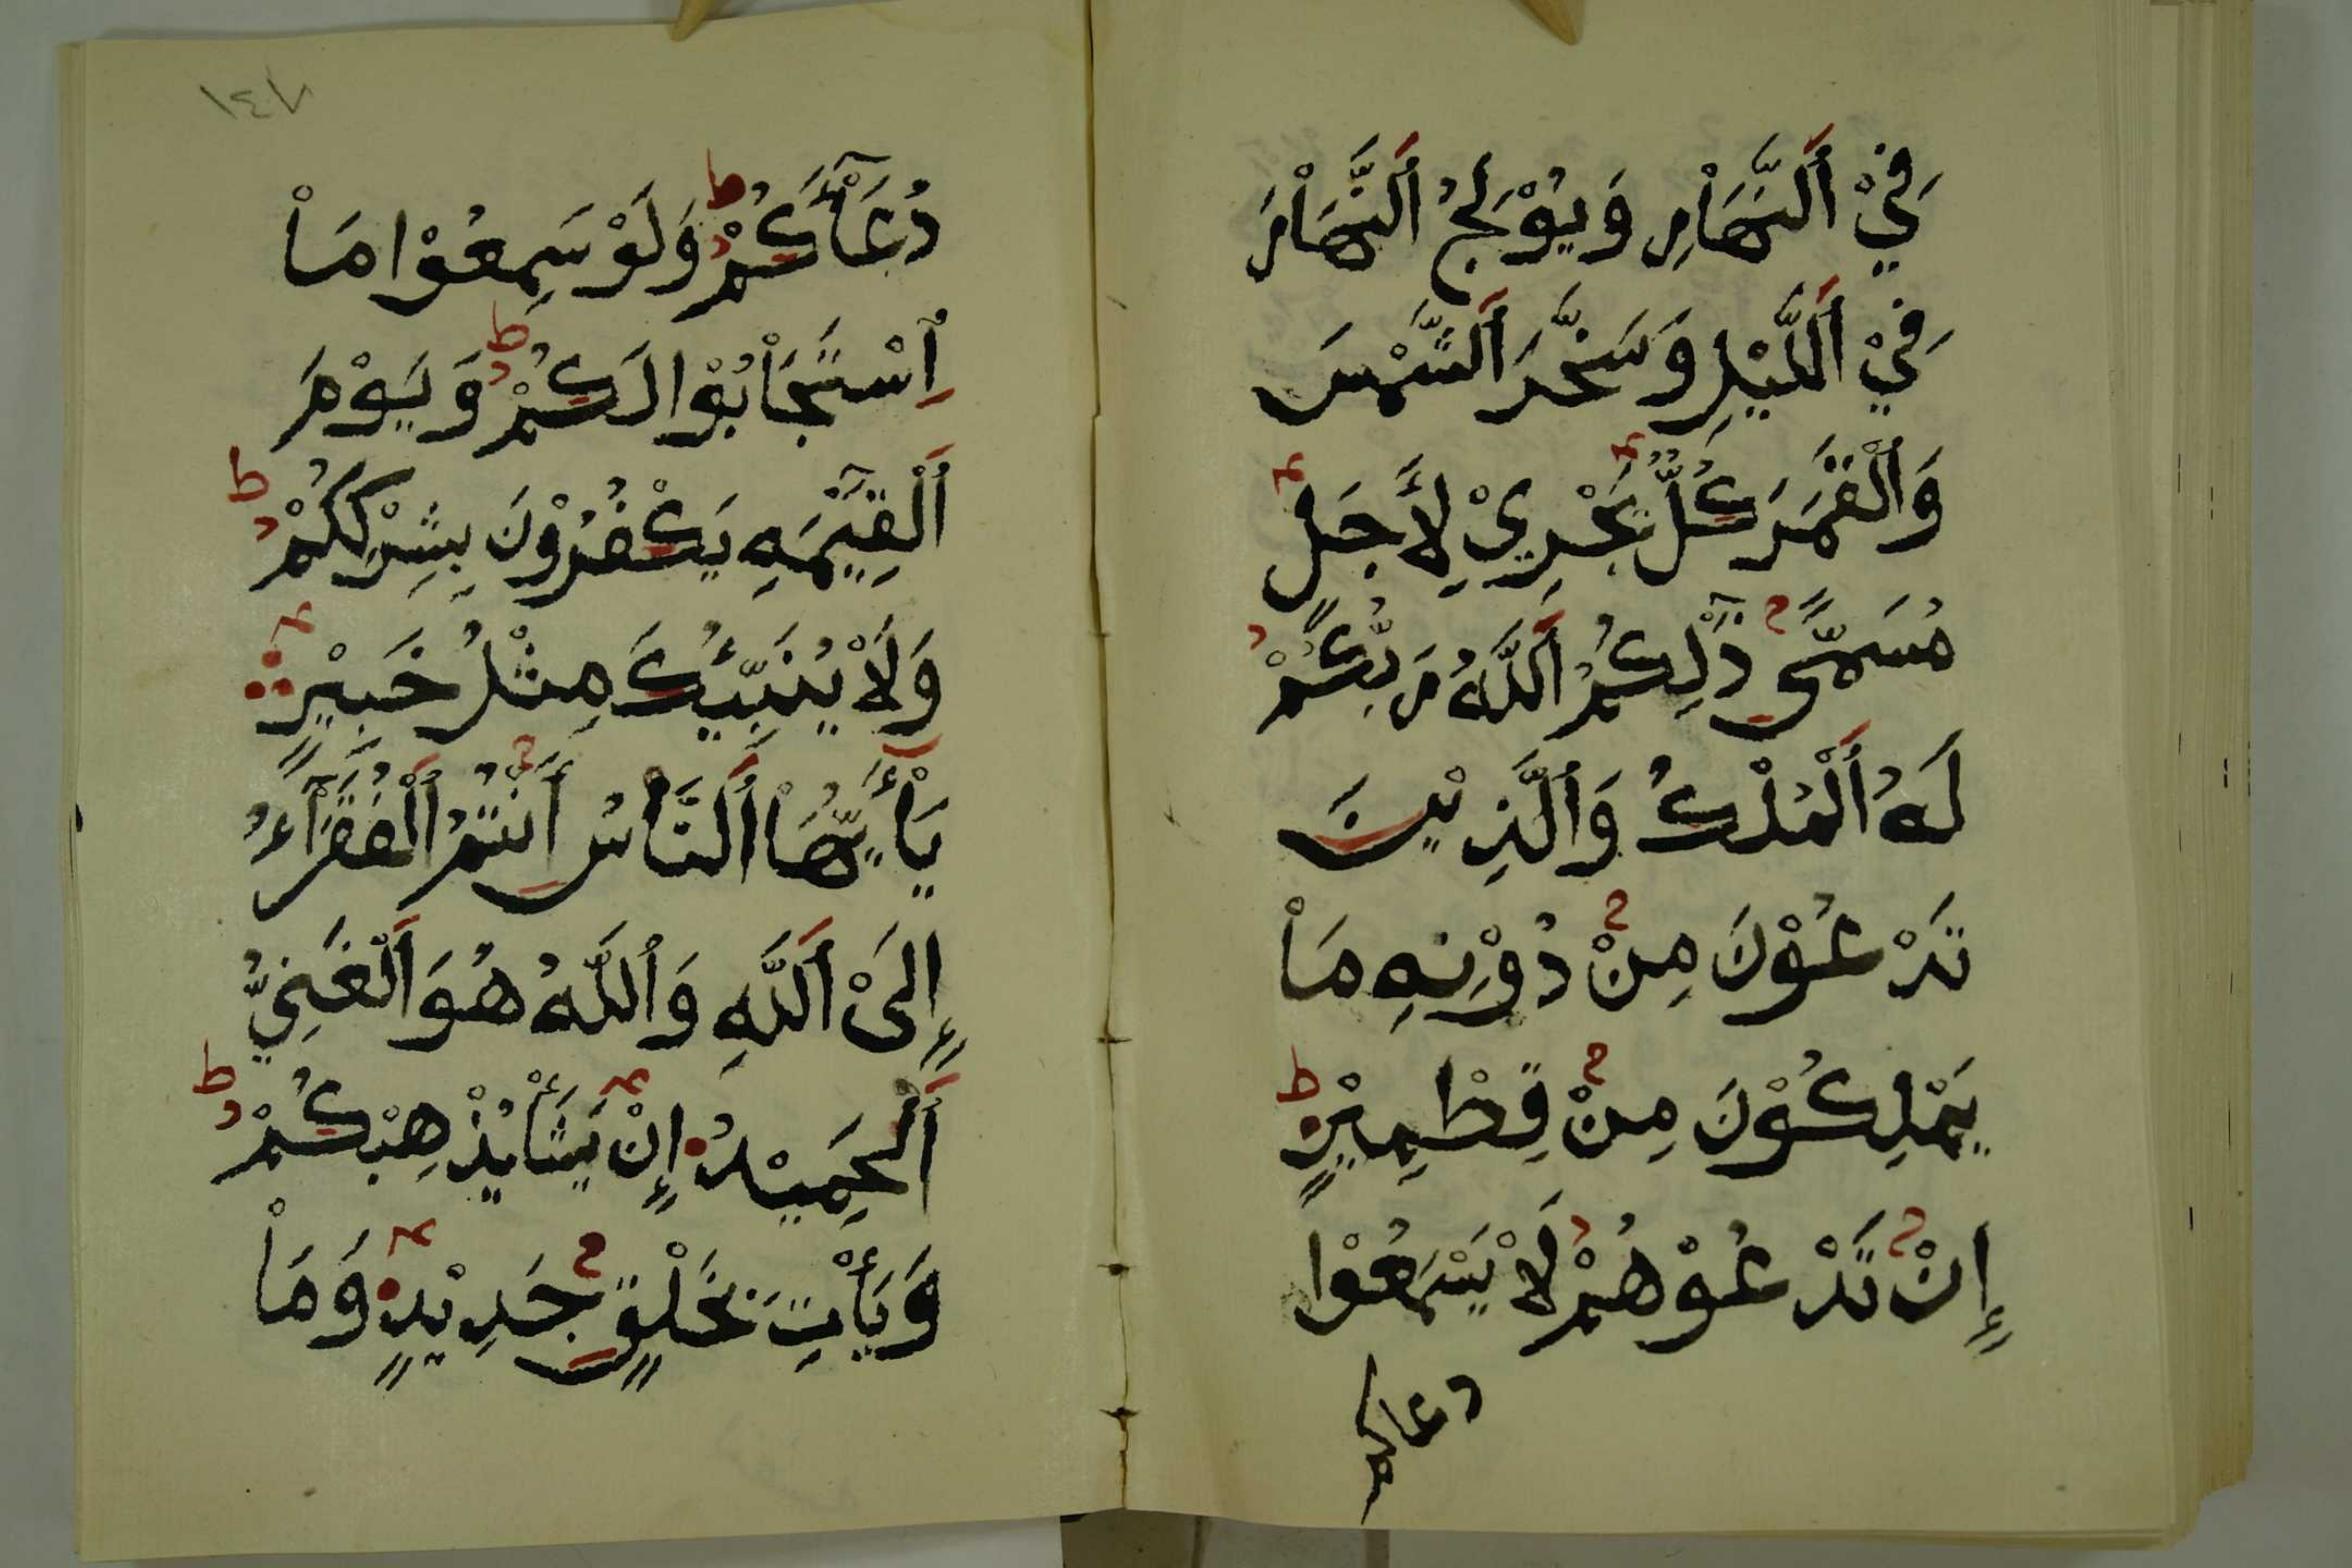 فِيْ اَ۬لنَّهَاْرِ وَيُوْلِجُ اُ۬لنَّهَاْرَ
فِيْ اِ۬للَّيْلِ وَسَخَّرَ اَ۬لشَّمْسَ
وَاَ۬لْقَمَرَ كُلٌّ يَّجْرِيْ لِأَجَلٍ
مُسَمًّى ذَٰلِكُمُ اُ۬للَّهُ رَبُّكُمْ
لَهُ اُ۬لْمُلْكُ وَاَ۬لَّذِيْنَ
تَدْعُوْنَ مِنْ دُوْنِهِ مَاْ
يَمْلِكُوْنَ مِنْ قِطْمِيْرٍ ط
إِنْ تَدْعُوْهُمْ لَاْ يَسْمَعُوْا
دعاكم
١٤٧
دُعَآءَكُمْ ط وَلَوْ سَمِعُوْا مَاْ
اِ۪سْتَجَاْبُوْا لَكُمْ ط وَيَوْمَ
اَ۬لْقِيَٰمَةِ يَكْفُرُوْنَ بِشِرْكِكُمْ ط
وَلَاْ يُنَبِّئُكَ مِثْلُ خَبِيْرٍ
يَاْأَيُّهَاْ اَ۬لنَّاْسُ أَنْتُمُ اُ۬لْفُقَرَآءُ
إِلَىْ اَ۬للَّهِ وَاُ۬للَّهُ هُوَ اَ۬لْغَنِيُّ
اُ۬لْحَمِيْدُ إِنْ يَشَأْ يُذْهِبْكُمْ ط
وَيَأْتِ بِخَلْقٍ جَدِيْدٍ وَمَاْ